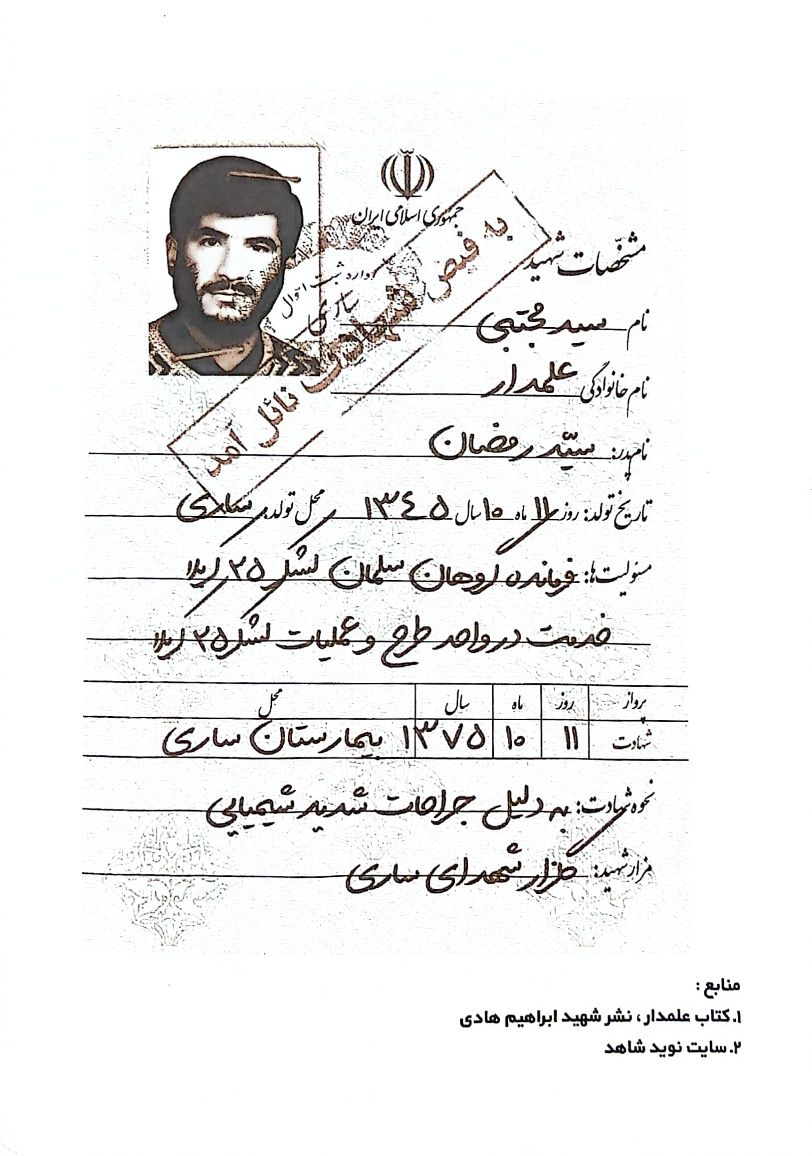 جمهوری اسلامی ایران
مشخّصات شهید
به فیض شهادت نائل آمد
اداره ثبت احوال
ساری
نام سید مجتبی
نام خانوادگی علمدار
نام پدر: سیّد رمضان
تاریخ تولد: روز ۱۱ ماه ۱۰ سال ۱۳۴۵ محل تولد: ساری
مسئولیت‌ها: فرمانده گروهان سلمان لشکر ۲۵ کربلا
خدمت در واحد طرح و عملیات لشکر ۲۵ کربلا
پرواز روز ماه سال محل
شهادت ۱۱ ۱۰ ۱۳۷۵ بیمارستان ساری
نحوه شهادت: به دلیل جراحات شدید شیمیایی
مزار شهید: گلزار شهدای ساری
منابع :
۱. کتاب علمدار، نشر شهید ابراهیم هادی
۲. سایت نوید شاهد